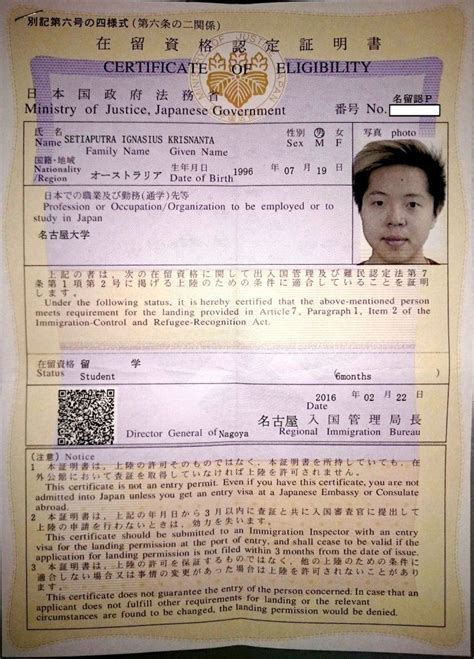 別記第六号の四様式（第六条の二関係）
在留資格認定証明書
CERTIFICATE OF ELIGIBILITY
日本国政府法務省
Ministry of Justice, Japanese Government
名留認P
番号 No.
氏名
Name SETIAPUTRA IGNASIUS KRISNANTA
Family Name Given Name
性別 男 女
Sex M F
写真 photo
国籍・地域
Nationality/Region オーストラリア
生年月日 1996 07 月 19 日
Date of Birth
日本での職業及び勤務（通学）先等
Profession or Occupation/Organization to be employed or to
study in Japan
名古屋大学
上記の者は、次の在留資格に関して出入国管理及び難民認定法第7
条第1項第2号に掲げる上陸のための条件に適合していることを証明
します。
Under the following status, it is hereby certified that the above-mentioned person
meets requirement for the landing provided in Article 7, Paragraph 1, Item 2 of the
Immigration-Control and Refugee-Recognition Act.
在留資格 留 学
Status Student (6months)
2016 年 02 月 22 日
Date
名古屋 入国管理局長
Director General of Nagoya Regional Immigration Bureau
（注意） Notice
1 本証明書は、上陸の許可そのものではなく、本証明書を所持していても、在
外公館において査証を取得していなければ上陸を許可されません。
This certificate is not an entry permit. Even if you have this certificate, you are not
admitted into Japan unless you get an entry visa at a Japanese Embassy or Consulate
abroad.
2 本証明書は、上記の年月日から3月以内に査証と共に入国審査官に提出して
上陸の申請を行わないときは、効力を失います。
This certificate should be submitted to an Immigration Inspector with an entry
visa for the landing permission at the port of entry, and shall cease to be valid if the
application for landing permission is not filed within 3 months from the date of issue.
3 本証明書は、上陸の許可を保証するものではなく、他の上陸のための条件に
適合しない場合又は事情の変更があった場合は上陸を許可されないことがあり
ます。
This certificate does not guarantee the entry of the person concerned. In case that an
applicant does not fulfill other requirements for landing or the relevant
circumstances are found to be changed, the landing permission would be denied.